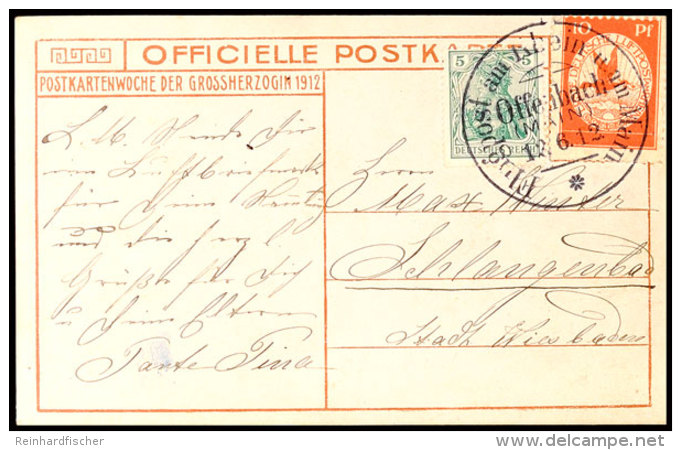 OFFICIELLE POSTKARTE
POSTKARTENWOCHE DER GROSSHERZOGIN 1912
5 5
DEUTSCHES REICH
10 Pf
Flugpost am Rhein u. am Main
Offenbach
(MAIN)
12.6.12
L. M. Sende Dir
für Deine
und die herzl.
Grüße für Dich
u Deine Eltern
Tante Tina
Max
Schlangenbad
Stadt Wiesbaden
Reinhardfischer
delcampe.net